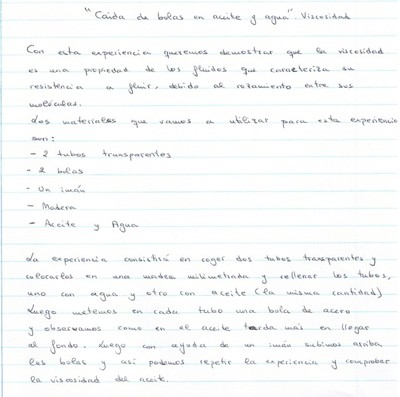 "Caída de bolas en aceite y agua". Viscosidad
Con esta experiencia queremos demostrar que la viscosidad
es una propiedad de los fluidos que caracteriza su
resistencia a fluir, debido al rozamiento entre sus
moléculas.
Los materiales que vamos a utilizar para esta experiencia
son:
- 2 tubos transparentes
- 2 bolas
- Un imán
- Madera
- Aceite y Agua
La experiencia consistirá en coger dos tubos transparentes y
colocarlos en una madea milimetrada y rellenar los tubos,
uno con agua y otro con aceite (la misma cantidad)
Luego metemos en cada tubo una bola de acero
y observamos como en el aceite tarda más en llegar
al fondo. Luego con ayuda de un imán subimos arriba
las bolas y así podemos repetir la experiencia y comprobar
la viscosidad del aceite.